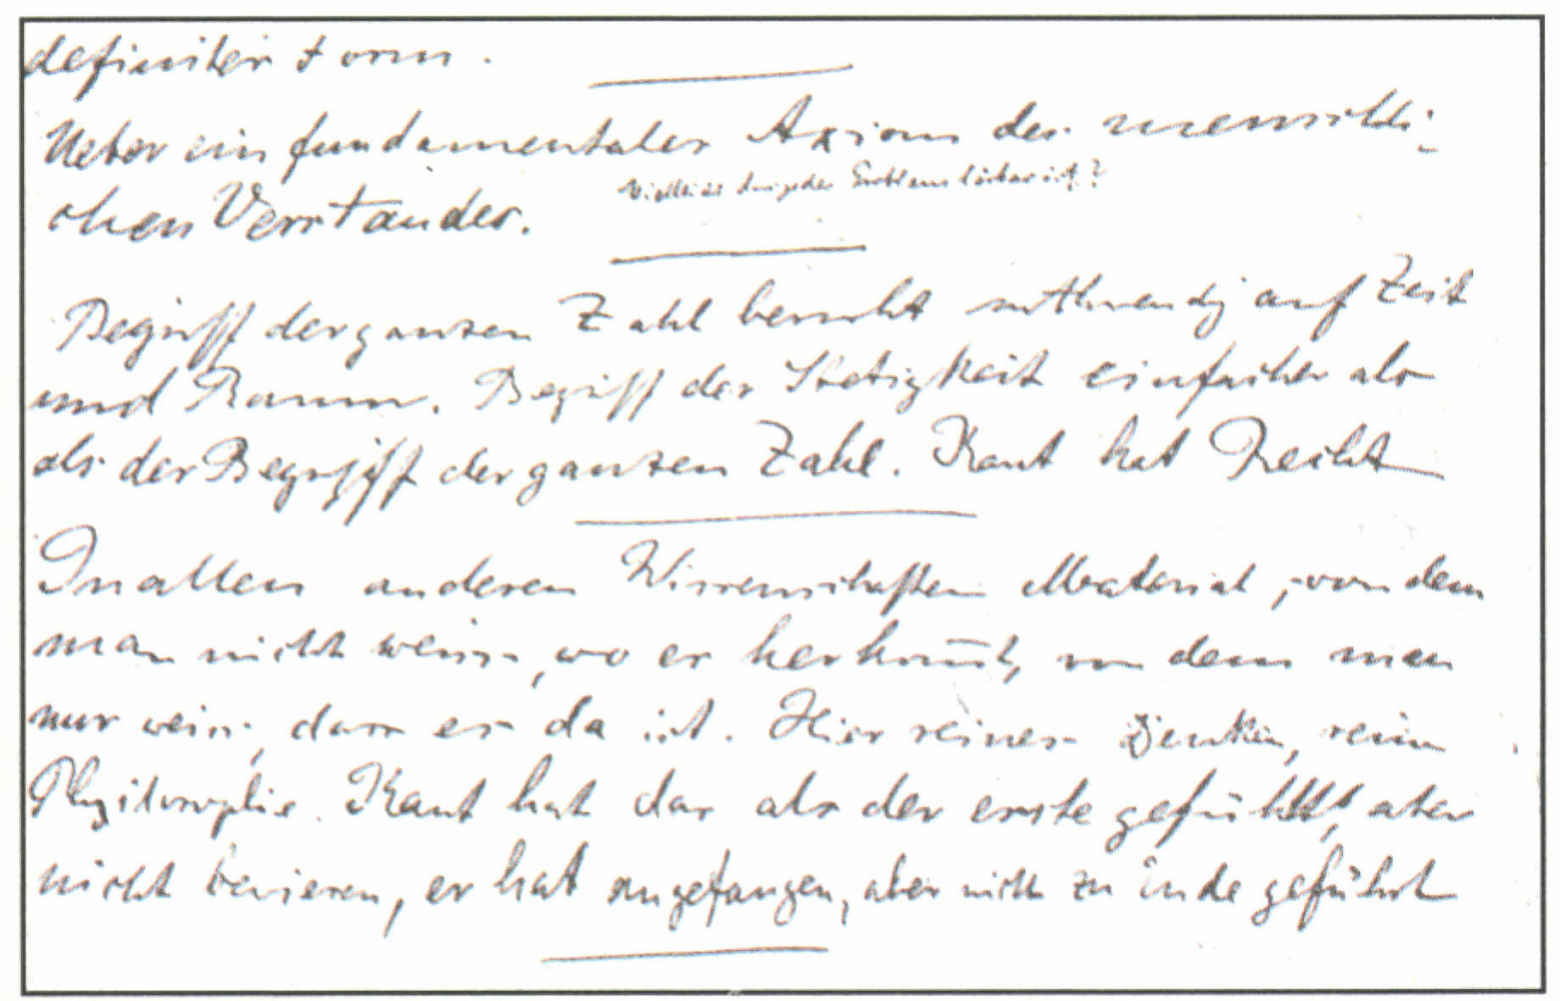 definiter Form.
Ueber ein fundamentales Axiom des menschli-
chen Verstandes.
Vielleicht dass jedes Problem lösbar ist?
Begriff der ganzen Zahl beruht nothwendig auf Zeit
und Raum. Begriff der Stetigkeit einfacher als
als der Begriff der ganzen Zahl. Kant hat Recht
In allen anderen Wissenschaften Material, von dem
man nicht weiss, wo er herkom̅t, von dem man
nur weiss, dass es da ist. Hier reines Denken, reine
Philosophie. Kant hat das als der erste gefühlt, aber
nicht bewiesen, er hat angefangen, aber nicht zu Ende geführt